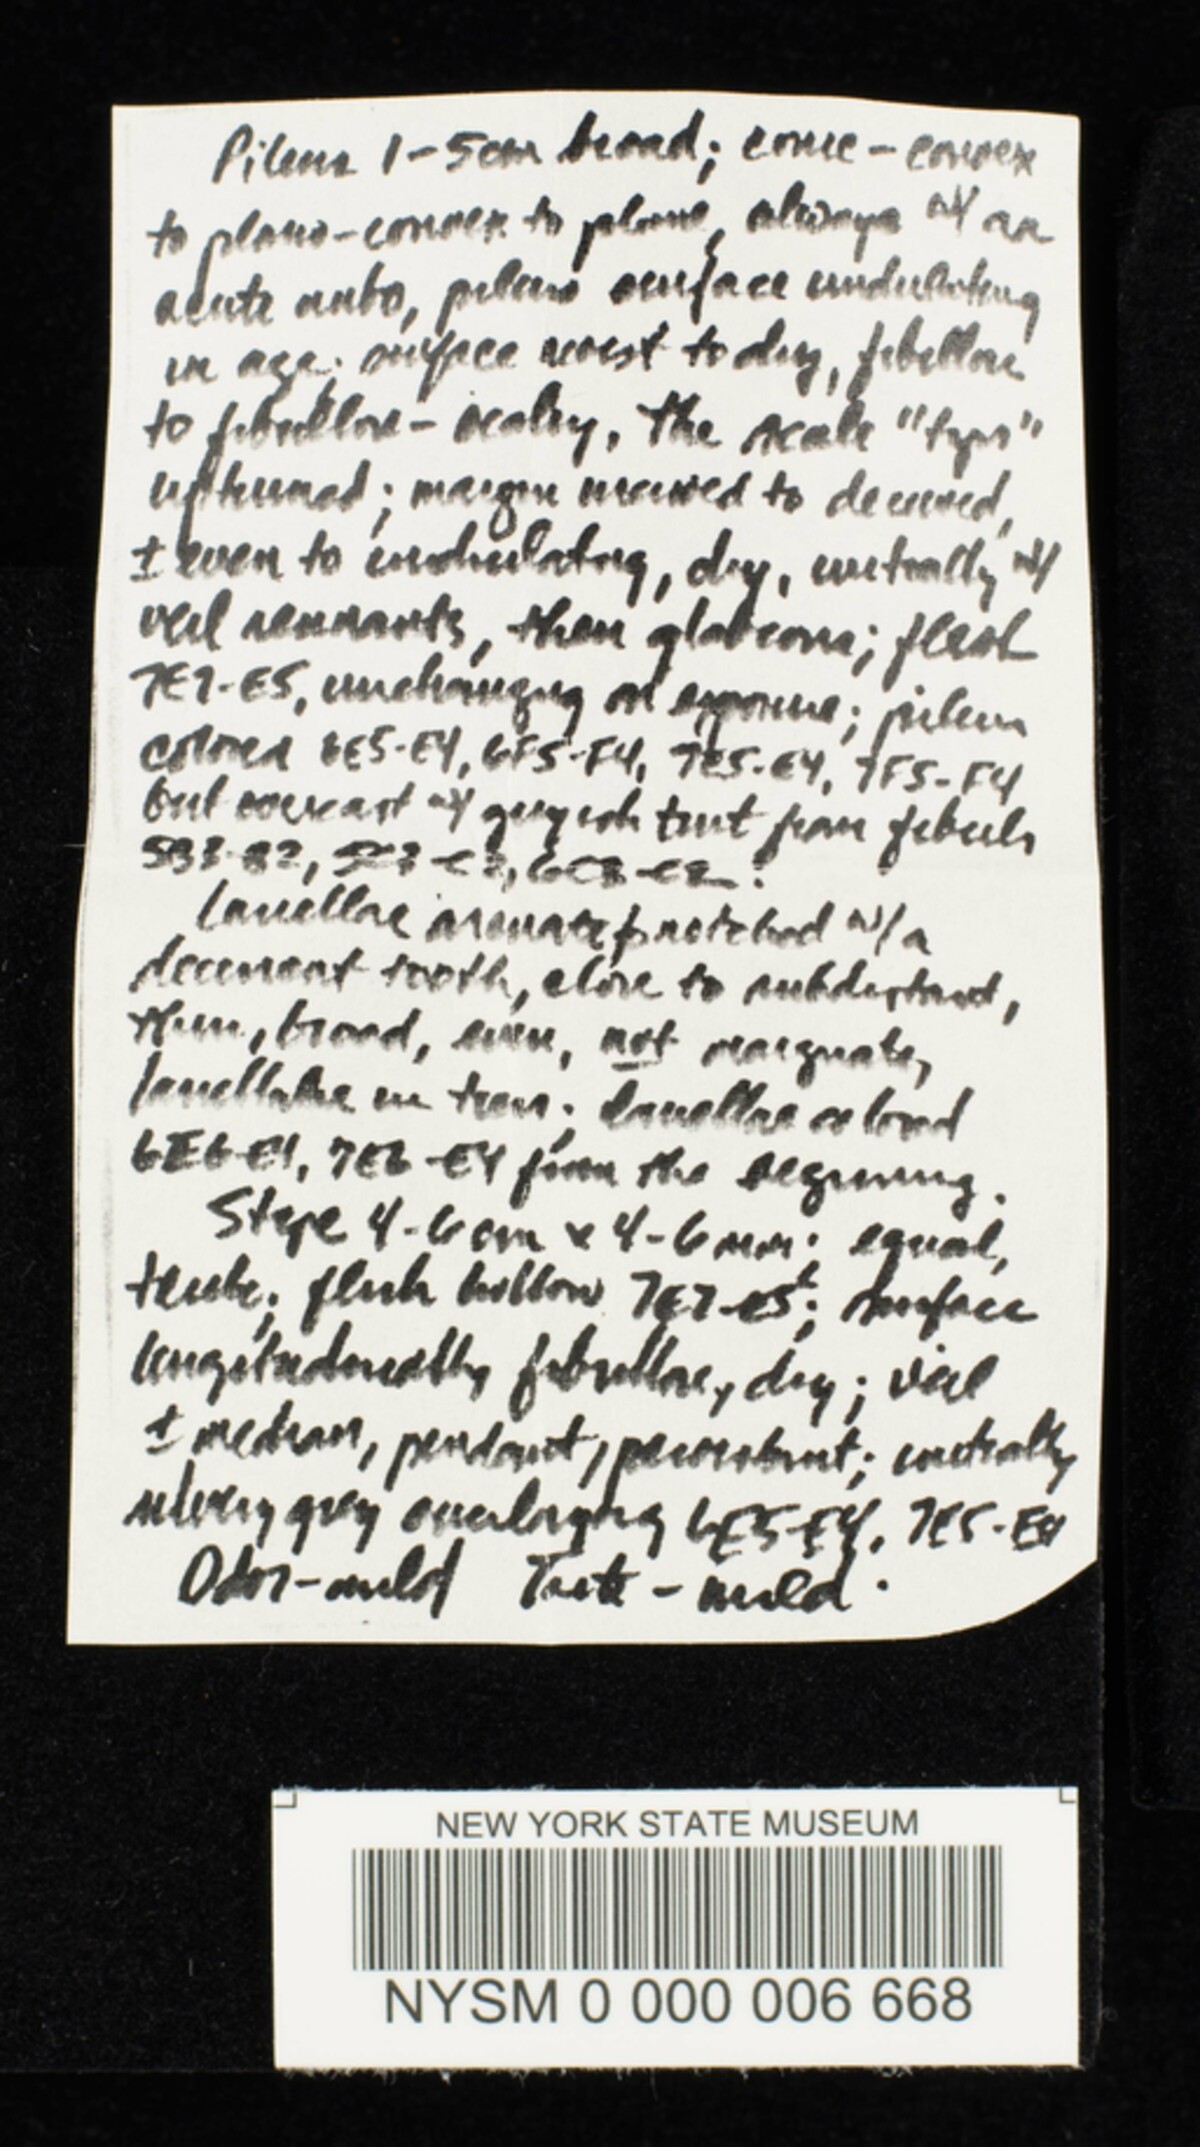 Pileus 1-5cm broad; conic-convex
to plano-convex to plane, always w/ an
acute umbo, pileus surface undulating
in age; surface moist to dry, fibrillose
to fibrillose-scaley, the scale "tips"
upturned; margin incurved to decurved,
± even to undulating, dry, initially w/
veil remnants, then glabrous; flesh
7E7-E5, unchanging on exposure; pileus
colored 6E5-E4, 6F5-F4, 7E5-E4, 7F5-F4
but overcast w/ greyish tint from fibrils
5B3-B2, 5C3-C2, 6C3-C2.
Lamellae arcuate, notched w/ a
decurrent tooth, close to subdistant,
thin, broad, even, not marginate,
lamellulae in tiers; lamellae colored
6E6-E4, 7E6-E4 from the beginning.
Stipe 4-6cm x 4-6mm; equal,
terete; flesh hollow 7E7-E5±; surface
longitudinally fibrillose, dry; veil
± median, pendant, persistent; initially
silvery grey overlaying 6E5-E4, 7E5-E4
Odor-mild Taste-mild.
NEW YORK STATE MUSEUM
NYSM 0 000 006 668